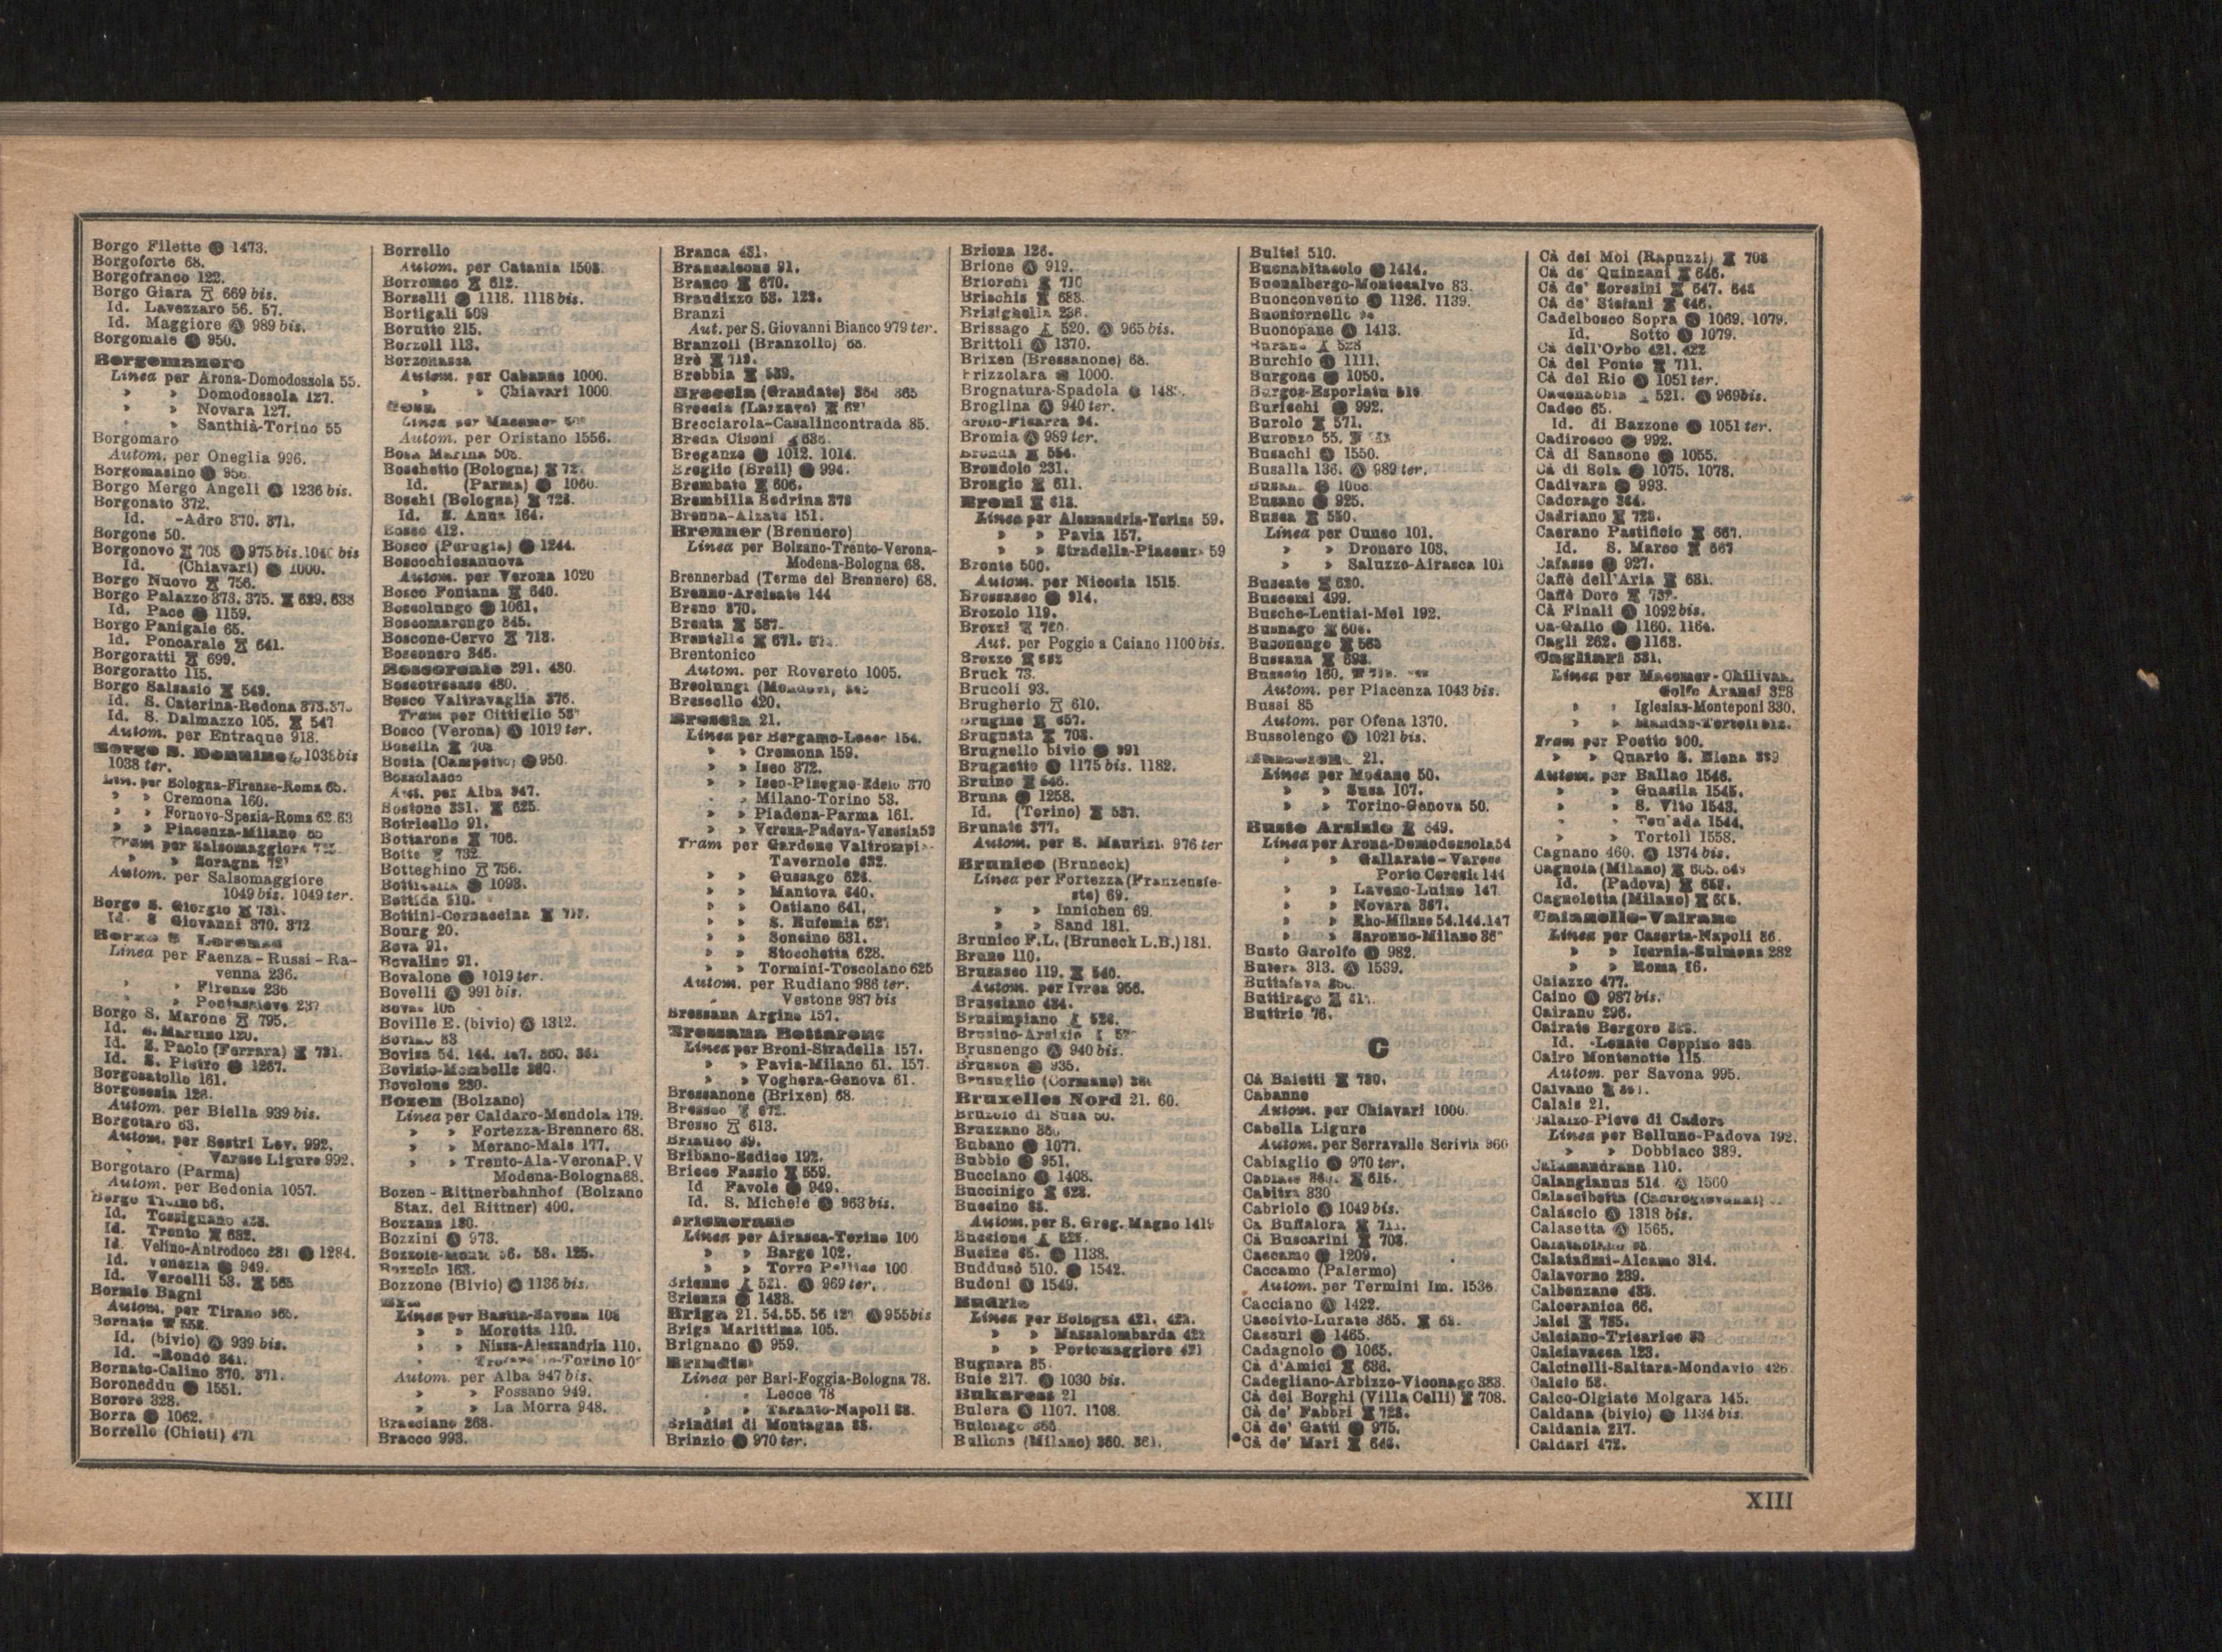 Borgo Filette Ⓐ 1473.
Borgoforte 68.
Borgofranco 122.
Borgo Giara 669 bis.
Id. Lavezzaro 56. 57.
Id. Maggiore Ⓐ 989 bis.
Borgomale 950.
Borgomanero
Linea per Arona-Domodossola 55.
» » Domodossola 127.
» » Novara 127.
» » Santhià-Torino 55
Borgomaro
Autom. per Oneglia 996.
Borgomasino
Borgo Mergo Angeli Ⓐ 1236 bis.
Borgonato 372.
Id. -Adro 370. 371.
Borgone 50.
Borgonovo 708 Ⓐ 975 bis. bis
Id. (Chiavari) 1000.
Borgo Nuovo 756.
Borgo Palazzo 373. 375. 629. 638
Id. Pace 1159.
Borgo Panigale 65.
Id. Poncarale 641.
Borgoratti 699.
Borgoratto 115.
Borgo Salsasio 549.
Id. S. Caterina-Redona 373.
Id. S. Dalmazzo 105. 547
Autom. per Entraque 918.
Borgo S. Donnino 1038 bis
1038 ter.
Lin. per Bologna-Firenze-Roma 65.
» » Cremona 160.
» » Fornovo-Spezia-Roma 62.63
» » Piacenza-Milano
Tram per Salsomaggiore
» » Soragna
Autom. per Salsomaggiore
1049 bis. 1049 ter.
Borgo S. Giorgio 731.
Id. S Giovanni 370. 372
Borgo S. Lorenzo
Linea per Faenza - Russi - Ra-
venna 236.
» » Firenze 236
» » Pontassieve 237
Borgo S. Marone 795.
Id. S. Martino 120.
Id. S. Paolo (Ferrara) 731.
Id. S. Pietro 1267.
Borgosatollo 161.
Borgosesia 128.
Autom. per Biella 939 bis.
Borgotaro 63.
Autom. per Sestri Lev. 992.
» Varese Ligure 992.
Borgotaro (Parma)
Autom. per Bedonia 1057.
Borgo Ticino 56.
Id. Tossignano
Id. Trento 682.
Id. Velino-Antrodoco 281 1284.
Id. Venezia 949.
Id. Vercelli 53. 565
Bormio Bagni
Autom. per Tirano 965.
Bornate 558.
Id. (bivio) Ⓐ 939 bis.
Id. -Rondò 841.
Bornato-Calino 370. 371.
Boroneddu 1551.
Borore 328.
Borra 1062.
Borrello (Chieti) 471
Borrello
Autom. per Catania 1508.
Borromeo 612.
Borselli 1118. 1118 bis.
Bortigali 509
Borutto 215.
Borzoli 113.
Borzonassa
Autom. per Cabanne 1000.
» » Chiavari 1000.
Bosa
Linea per Macomer
Autom. per Oristano 1556.
Bosa Marina 508.
Boschetto (Bologna)
Id. (Parma) 1060.
Boschi (Bologna) 728.
Id. S. Anna 164.
Bosco 412.
Bosco (Perugia) 1244.
Boscochiesanuova
Autom. per Verona 1020
Bosco Fontana 640.
Boscolungo 1061.
Boscomarengo 345.
Boscone-Cervo 718.
Bosconero 346.
Boscoreale 291. 480.
Boscotrecase 480.
Bosco Valtravaglia 376.
Tram per Cittiglio
Bosco (Verona) Ⓐ 1019 ter.
Bosella 708
Bosia (Campetto) 950.
Bossolasco
Aut. per Alba 947.
Bostone 331. 625.
Botricello 91.
Bottarone 706.
Botte 732.
Botteghino 756.
Botticella 1093.
Bottida 510.
Bottini-Cornaccina
Bourg 20.
Bova 91.
Bovalino 91.
Bovalone 1019 ter.
Bovelli Ⓐ 991 bis.
Boves 105
Boville E. (bivio) Ⓐ 1312.
Bovino 83
Bovisa 54. 144. 147. 360. 361
Bovisio-Mombello 360.
Bovolone 230.
Bozen (Bolzano)
Linea per Caldaro-Mendola 179.
» » Fortezza-Brennero 68.
» » Merano-Mals 177.
» » Trento-Ala-Verona P.V
Modena-Bologna 68.
Bozen - Rittnerbahnhof (Bolzano
Staz. del Rittner) 400.
Bozzana 180.
Bozzini Ⓐ 973.
Bozzole-Monte 56. 58. 125.
Bozzolo 163.
Bozzone (Bivio) Ⓐ 1136 bis.
Bra
Linea per Bastia-Savona 108
» » Moretta 110.
» » Nizza-Alessandria 110.
» Torino
Autom. per Alba 947 bis.
» » Fossano 949.
» » La Morra 948.
Bracciano 268.
Bracco 993.
Branca 431.
Brancaleone 91.
Branco 670.
Brandizzo 53. 122.
Branzi
Aut. per S. Giovanni Bianco 979 ter.
Branzoll (Branzollo) 68.
Brè 719.
Brebbia 539.
Breccia (Grandate) 364 365
Breccia (Lazzago)
Brecciarola-Casalincontrada 85.
Breda Cisoni 636.
Breganze 1012. 1014.
Breglio (Breil) 994.
Brembate 606.
Brembilla Sedrina 373
Brenna-Alzate 151.
Brenner (Brennero)
Linea per Bolzano-Trento-Verona-
Modena-Bologna 68.
Brennerbad (Terme del Brennero) 68.
Brenno-Arcisate 144
Breno 370.
Brenta 537.
Brentella 671.
Brentonico
Autom. per Rovereto 1005.
Breolungi (Mondovì)
Brescello 420.
Brescia 21.
Linea per Bergamo-Lecco 154.
» » Cremona 159.
» » Iseo 372.
» » Iseo-Pisogne-Edolo 370
» » Milano-Torino 53.
» » Piadena-Parma 161.
» » Verona-Padova-Venezia 53
Tram per Gardone Valtrompia-
Tavernole 632.
» » Gussago 628.
» » Mantova 640.
» » Ostiano 641.
» » S. Eufemia
» » Soncino 631.
» » Stocchetta 628.
» » Tormini-Toscolano 625
Autom. per Rudiano 986 ter.
» Vestone 987 bis
Bressana Argine 157.
Bressana Bottarone
Linea per Broni-Stradella 157.
» » Pavia-Milano 61. 157.
» » Voghera-Genova 61.
Bressanone (Brixen) 68.
Bresseo 672.
Bresso 613.
Briatico 89.
Bribano-Sedico 192.
Bricco Fassio 559.
Id Favole 949.
Id. S. Michele 963 bis.
Bricherasio
Linea per Airasca-Torino 100
» » Barge 102.
» » Torre Pellice 100
Brienno 521. Ⓐ 969 ter.
Brienza 1433.
Briga 21. 54. 55. 56 Ⓐ 955 bis
Briga Marittima 105.
Brignano 959.
Brindisi
Linea per Bari-Foggia-Bologna 78.
» » Lecce 78
» » Taranto-Napoli 88.
Brindisi di Montagna 88.
Brinzio 970 ter.
Briona 128.
Brione Ⓐ 919.
Briorchi 710
Brischis 683.
Brisighella 236.
Brissago 520. Ⓐ 965 bis.
Brittoli Ⓐ 1370.
Brixen (Bressanone) 68.
Brizzolara 1000.
Brognatura-Spadola
Broglina Ⓐ 940 ter.
Brolo-Ficarra 94.
Bromia Ⓐ 989 ter.
Bronda 554.
Brondolo 231.
Brongio 611.
Broni 618.
Linea per Alessandria-Torino 59.
» » Pavia 157.
» » Stradella-Piacenza 59
Bronte 500.
Autom. per Nicosia 1515.
Brossasco 914.
Brozolo 119.
Brozzi
Aut. per Poggio a Caiano 1100 bis.
Brozzo
Bruck 73.
Brucoli 93.
Brugherio 610.
Brugine 657.
Brugnata 708.
Brugnello bivio 991
Brugnetto 1175 bis. 1182.
Bruino 546.
Bruna 1258.
Id. (Torino) 537.
Brunate 377.
Autom. per S. Maurizio 976 ter
Brunico (Bruneck)
Linea per Fortezza (Franzensfe-
ste) 69.
» » Innichen 69.
» » Sand 181.
Brunico F.L. (Bruneck L.B.) 181.
Bruno 110.
Brusasco 119. 540.
Autom. per Ivrea 956.
Brusciano 484.
Brusimpiano 524.
Brusino-Arsizio
Brusnengo Ⓐ 940 bis.
Brusson 935.
Brusuglio (Cormano)
Bruxelles Nord 21. 60.
Bruzolo di Susa 50.
Bruzzano
Bubano 1077.
Bubbio 951.
Bucciano 1408.
Buccinigo 623.
Buccino 88.
Autom. per S. Greg. Magno 1419
Buccione
Bucine 65. 1138.
Buddusò 510. 1542.
Budoni Ⓐ 1549.
Budrio
Linea per Bologna 421. 422.
» » Massalombarda 422
» » Portomaggiore 421
Bugnara 85.
Buie 217. 1030 bis.
Bukarest 21
Bulera Ⓐ 1107. 1108.
Bulciago
Bullona (Milano) 360. 361.
Bultei 510.
Buonabitacolo 1414.
Buonalbergo-Montecalvo 83.
Buonconvento 1126. 1139.
Buonfornello
Buonopane Ⓐ 1413.
Burano 528
Burchio 1111.
Burgone 1050.
Burgos-Esporlatu 510
Burischi 992.
Burolo 571.
Buronzo 55.
Busachi Ⓐ 1550.
Busalla 136. Ⓐ 989 ter.
Busano 925.
Busca 550.
Linea per Cuneo 101.
» » Dronero 103.
» » Saluzzo-Airasca 101
Buscate 620.
Buscemi 499.
Busche-Lentiai-Mel 192.
Busnago 606.
Busonengo 563
Bussana 693.
Busseto 160.
Autom. per Piacenza 1043 bis.
Bussi 85
Autom. per Ofena 1370.
Bussolengo Ⓐ 1021 bis.
Bussoleno 21.
Linea per Modane 50.
» » Susa 107.
» » Torino-Genova 50.
Busto Arsizio 649.
Linea per Arona-Domodossola 54
» » Gallarate - Varese
Porto Ceresio 144
» » Laveno-Luino 147
» » Novara 367.
» » Rho-Milano 54. 144. 147
» » Saronno-Milano
Busto Garolfo 982.
Butera 313. Ⓐ 1539.
Buttafava
Buttirago
Buttrio 76.
C
Cà Baietti 739.
Cabanne
Autom. per Chiavari 1000.
Cabella Ligure
Autom. per Serravalle Scrivia 960
Cabiaglio 970 ter.
Cabiate 615.
Cabitza 330
Cabriolo Ⓐ 1049 bis.
Ca Buffalora
Cà Buscarini 708.
Caccamo 1209.
Caccamo (Palermo)
Autom. per Termini Im. 1536
Cacciano Ⓐ 1422.
Caccivio-Lurate 365.
Caccuri 1465.
Cadagnolo 1065.
Cà d'Amici 636.
Cadegliano-Arbizzo-Viconago 383.
Cà dei Borghi (Villa Celli) 708.
Cà de' Fabbri 728.
Cà de' Gatti 975.
Cà de' Mari 646.
Cà dei Moi (Rapuzzi) 708
Cà de' Quinzani 646.
Cà de' Soresini 647. 648
Cà de' Stefani 646.
Cadelbosco Sopra 1069. 1079.
Id. Sotto Ⓐ 1079.
Cà dell'Orbo 421. 422
Cà del Ponte 711.
Cà del Rio Ⓐ 1051 ter.
Cadenabbia 521. Ⓐ 969 bis.
Cadeo 65.
Id. di Bazzone 1051 ter.
Cadirosco 992.
Cà di Sansone 1055.
Cà di Sola 1075. 1078.
Cadivara 993.
Cadorago 364.
Cadriano 728.
Caerano Pastificio 667.
Id. S. Marco 667
Cafasse 927.
Caffè dell'Aria 681.
Caffè Doro
Cà Finali Ⓐ 1092 bis.
Ca-Gallo 1160. 1164.
Cagli 262. 1168.
Cagliari 331.
Linea per Macomer - Chilivani
Golfo Aranci 328
» » Iglesias-Monteponi 330.
» » Mandas-Tortolì 512.
Tram per Poetto 900.
» » Quarto S. Elena 339
Autom. per Ballao 1546.
» » Guasila 1545.
» » S. Vito 1543.
» » Teulada 1544.
» » Tortolì 1558.
Cagnano 460. Ⓐ 1374 bis.
Cagnola (Milano)
Id. (Padova) 657.
Cagnoletta (Milano)
Caianello-Vairano
Linea per Caserta-Napoli 86.
» » Isernia-Sulmona 282
» » Roma 86.
Caiazzo 477.
Caino Ⓐ 987 bis.
Cairano 296.
Cairate Bergoro
Id. -Lonate Ceppino 368.
Cairo Montenotte 115.
Autom. per Savona 995.
Caivano
Calais 21.
Calalzo-Pieve di Cadore
Linea per Belluno-Padova 192.
» » Dobbiaco 389.
Calamandrana 110.
Calangianus 514. Ⓐ 1560
Calascibetta (Castrogiovanni)
Calascio Ⓐ 1318 bis.
Calasetta Ⓐ 1565.
Calatabiano
Calatafimi-Alcamo 314.
Calavorno 239.
Calbenzano 433.
Calceranica 66.
Calci 785.
Calciano-Tricarico 88
Calciavacca 123.
Calcinelli-Saltara-Mondavio 426.
Calcio 53.
Calco-Olgiate Molgara 145.
Caldana (bivio) 1134 bis
Caldania 217.
Caldari 472.
XIII